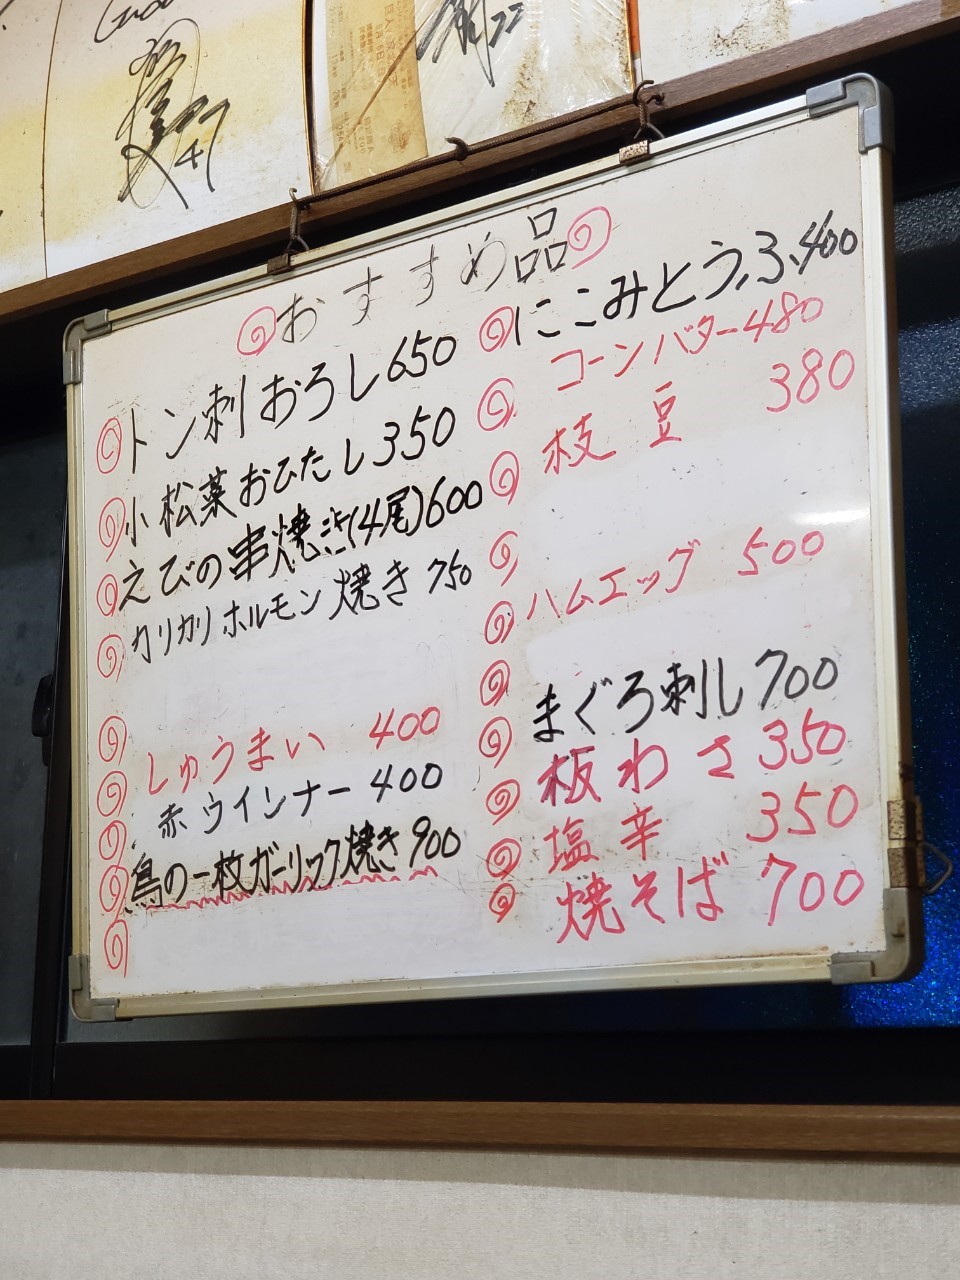 47
22
おすすめ品
トン刺おろし650
小松菜おひたし350
えびの串焼き(4尾)600
カリカリホルモン焼き 750
しゅうまい 400
赤ウインナー 400
鳥の一枚ガーリック焼き 900
にこみとうふ 400
コーンバター 480
枝豆 380
ハムエッグ 500
まぐろ刺し 700
板わさ 350
塩辛 350
焼そば 700